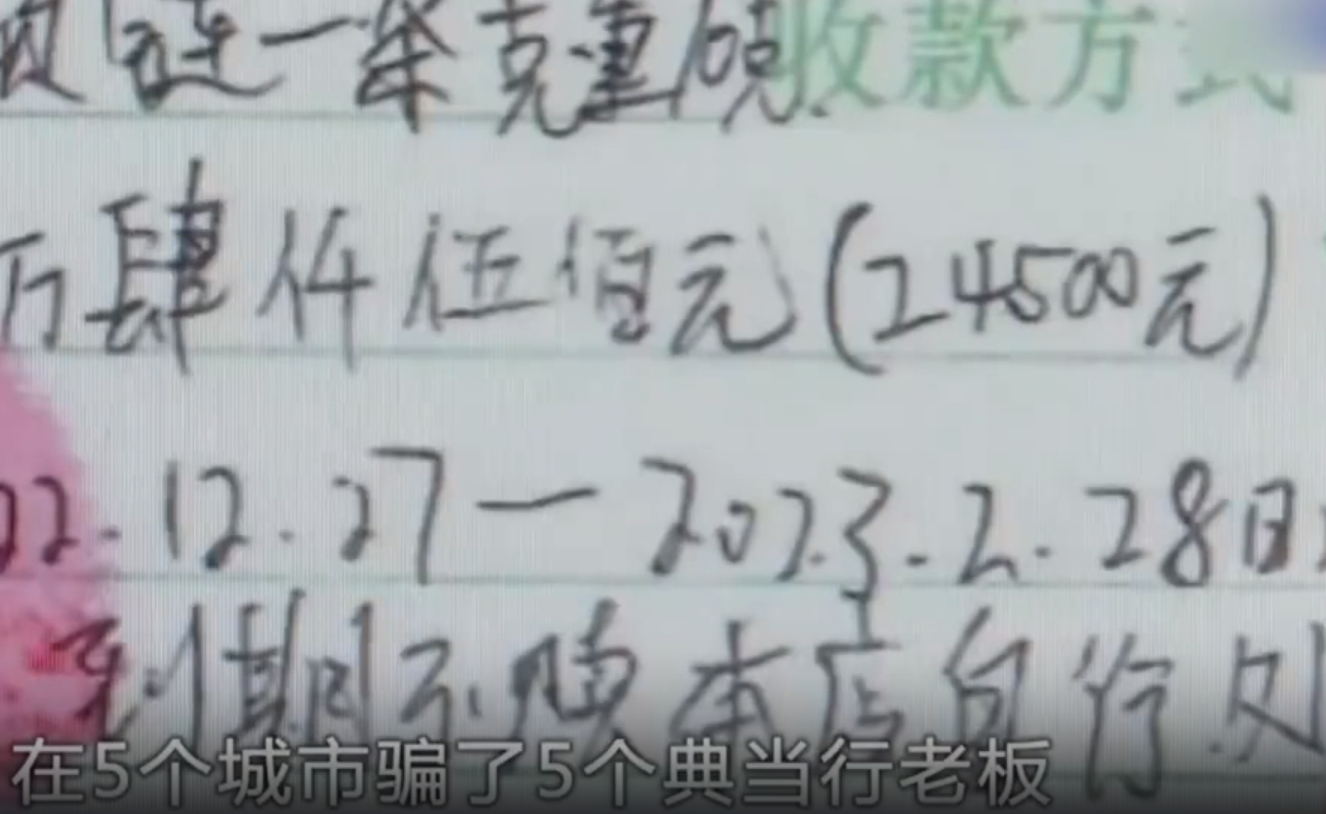 链一条克重 收款方式
万肆仟伍佰元(24500元)
22.12.27—2023.2.28日
到期不赎本店自行处
在5个城市骗了5个典当行老板